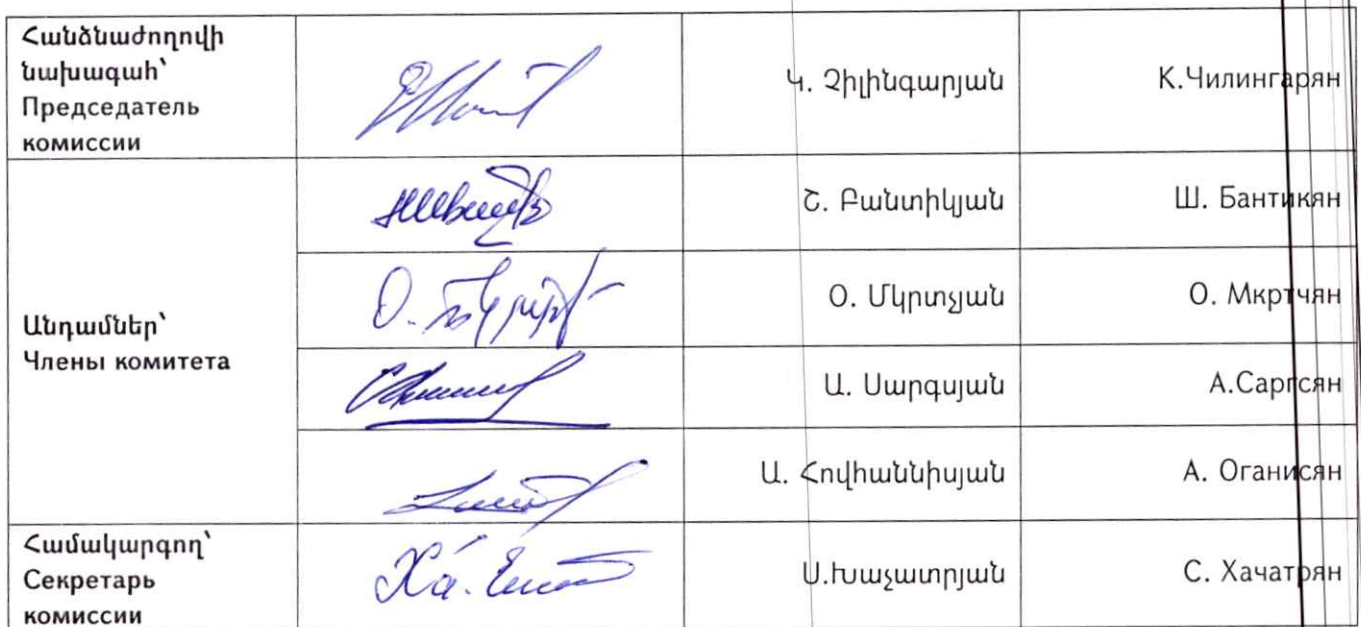 Հանձնաժողովի
նախագահ՝
Председатель
комиссии
Կ. Չիլինգարյան
К.Чилингарян
Շ. Բանտիկյան
Ш. Бантикян
Անդամներ՝
Члены комитета
Օ. Մկրտչյան
О. Мкртчян
Ա. Սարգսյան
А.Саргсян
Ա. Հովհաննիսյան
А. Оганисян
Համակարգող՝
Секретарь
комиссии
Ս.Խաչատրյան
С. Хачатрян